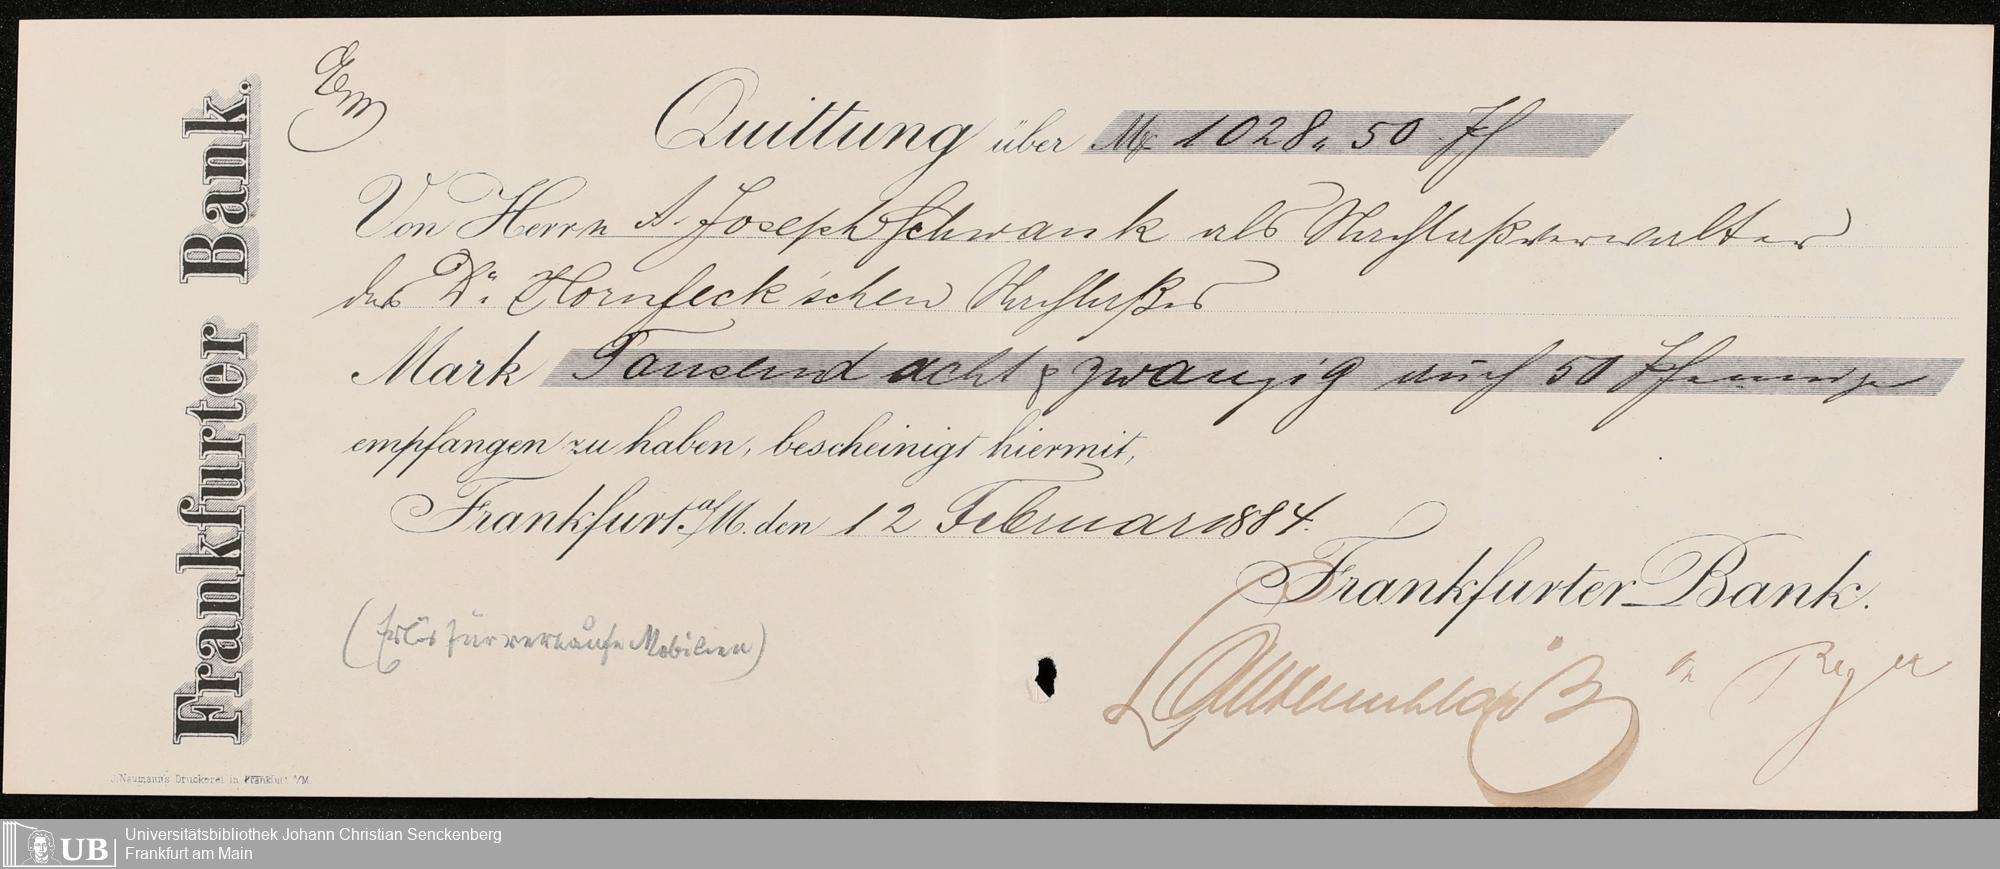 Frankfurter Bank.
Quittung über M 1028 „ 50 Pf
Von Herrn A. Joseph Schwank als Nachlaßverwalter
des Dr. Hornfeck'schen Nachlaßes
Mark Tausend acht & zwanzig auch 50 Pfennige
empfangen zu haben, bescheinigt hiermit,
Frankfurt a/M. den 12 Februar 1884.
Frankfurter Bank.
(Erlös für verkaufte Mobilien)
C. Naumann's Druckerei in Frankfurt a/M.
UB
Universitätsbibliothek Johann Christian Senckenberg
Frankfurt am Main